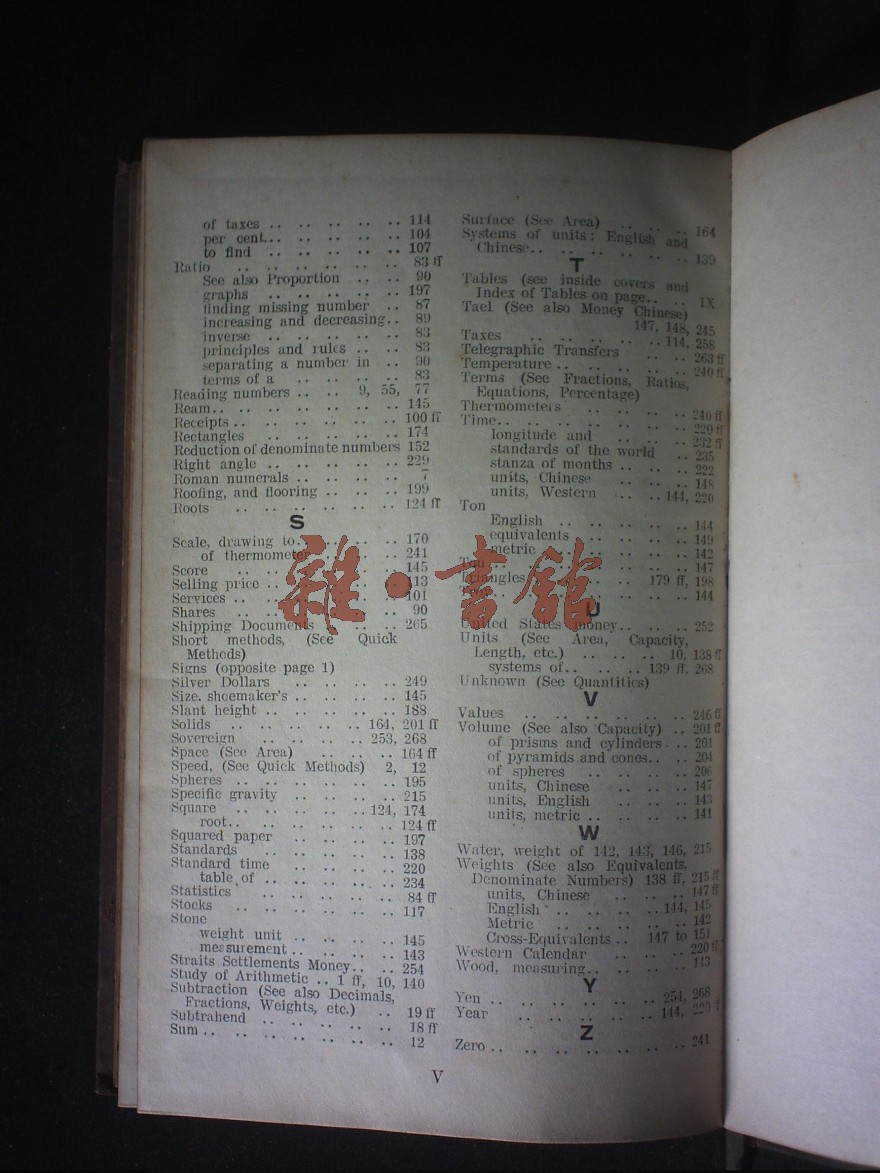 of taxes .. .. .. .. .. .. 114
per cent... .. .. .. .. .. 104
to find .. .. .. .. .. .. 107
Ratio .. .. .. .. .. .. .. 83 ff
See also Proportion .. .. .. 90
graphs .. .. .. .. .. .. 197
finding missing number .. 87
increasing and decreasing.. 89
inverse .. .. .. .. .. .. 83
principles and rules .. .. .. 83
separating a number in .. 90
terms of a .. .. .. .. .. 83
Reading numbers .. .. 9, 55, 77
Ream.. .. .. .. .. .. .. 145
Receipts .. .. .. .. .. .. 100 ff
Rectangles .. .. .. .. .. 174
Reduction of denominate numbers 152
Right angle .. .. .. .. .. 229
Roman numerals .. .. .. .. 7
Roofing, and flooring .. .. .. 199
Roots .. .. .. .. .. .. 124 ff
S
Scale, drawing to.. .. .. .. 170
of thermometer .. .. .. 241
Score .. .. .. .. .. .. 145
Selling price .. .. .. .. .. 113
Services .. .. .. .. .. .. 101
Shares .. .. .. .. .. .. 90
Shipping Documents .. .. .. 265
Short methods, (See Quick
Methods)
Signs (opposite page 1)
Silver Dollars .. .. .. .. 249
Size, shoemaker's .. .. .. .. 145
Slant height .. .. .. .. .. 188
Solids .. .. .. .. .. 164, 201 ff
Sovereign .. .. .. .. 253, 268
Space (See Area) .. .. .. 164 ff
Speed, (See Quick Methods) 2, 12
Spheres .. .. .. .. .. .. 195
Specific gravity .. .. .. .. 215
Square .. .. .. .. .. 124, 174
root.. .. .. .. .. .. 124 ff
Squared paper .. .. .. .. 197
Standards .. .. .. .. .. 138
Standard time .. .. .. .. 220
table of .. .. .. .. .. 234
Statistics .. .. .. .. .. 84 ff
Stocks .. .. .. .. .. .. 117
Stone
weight unit .. .. .. .. 145
measurement .. .. .. .. 143
Straits Settlements Money.. .. 254
Study of Arithmetic .. 1 ff, 10, 140
Subtraction (See also Decimals,
Fractions, Weights, etc.) .. 19 ff
Subtrahend .. .. .. .. .. 18 ff
Sum .. .. .. .. .. .. .. 12
Surface (See Area) .. .. .. 164
Systems of units: English and
Chinese.. .. .. .. .. .. 139
T
Tables (see inside covers and
Index of Tables on page.. .. IX
Tael (See also Money Chinese)
147, 148, 245
Taxes .. .. .. .. .. 114, 258
Telegraphic Transfers .. .. 263 ff
Temperature .. .. .. .. .. 240 ff
Terms (See Fractions, Ratios,
Equations, Percentage)
Thermometers .. .. .. .. 240 ff
Time.. .. .. .. .. .. .. 220 ff
longitude and .. .. .. .. 232 ff
standards of the world .. 235
stanza of months .. .. .. 222
units, Chinese .. .. .. 148
units, Western .. .. 144, 220
Ton
English .. .. .. .. .. 144
equivalents .. .. .. .. 149
metric .. .. .. .. .. 142
Tou .. .. .. .. .. .. 147
Triangles .. .. .. 179 ff, 198
.. .. .. .. .. .. 144
U
United States money.. .. .. 252
Units (See Area, Capacity,
Length, etc.) .. .. .. 10, 138 ff
systems of.. .. .. 139 ff, 268
Unknown (See Quantities)
V
Values .. .. .. .. .. .. 246 ff
Volume (See also Capacity) .. 201 ff
of prisms and cylinders .. 201
of pyramids and cones.. .. 204
of spheres .. .. .. .. 206
units, Chinese .. .. .. 147
units, English .. .. .. 143
units, metric .. .. .. .. 141
W
Water, weight of 142, 143, 146, 215
Weights (See also Equivalents,
Denominate Numbers) 138 ff, 215 ff
units, Chinese .. .. .. 147 ff
English .. .. .. .. 144, 145
Metric .. .. .. .. .. 142
Cross-Equivalents .. 147 to 151
Western Calendar .. .. .. 220 ff
Wood, measuring.. .. .. .. 143
Y
Yen .. .. .. .. .. .. 254, 268
Year .. .. .. .. .. 144, 220 f
Z
Zero .. .. .. .. .. .. .. 241
V
雜·書館